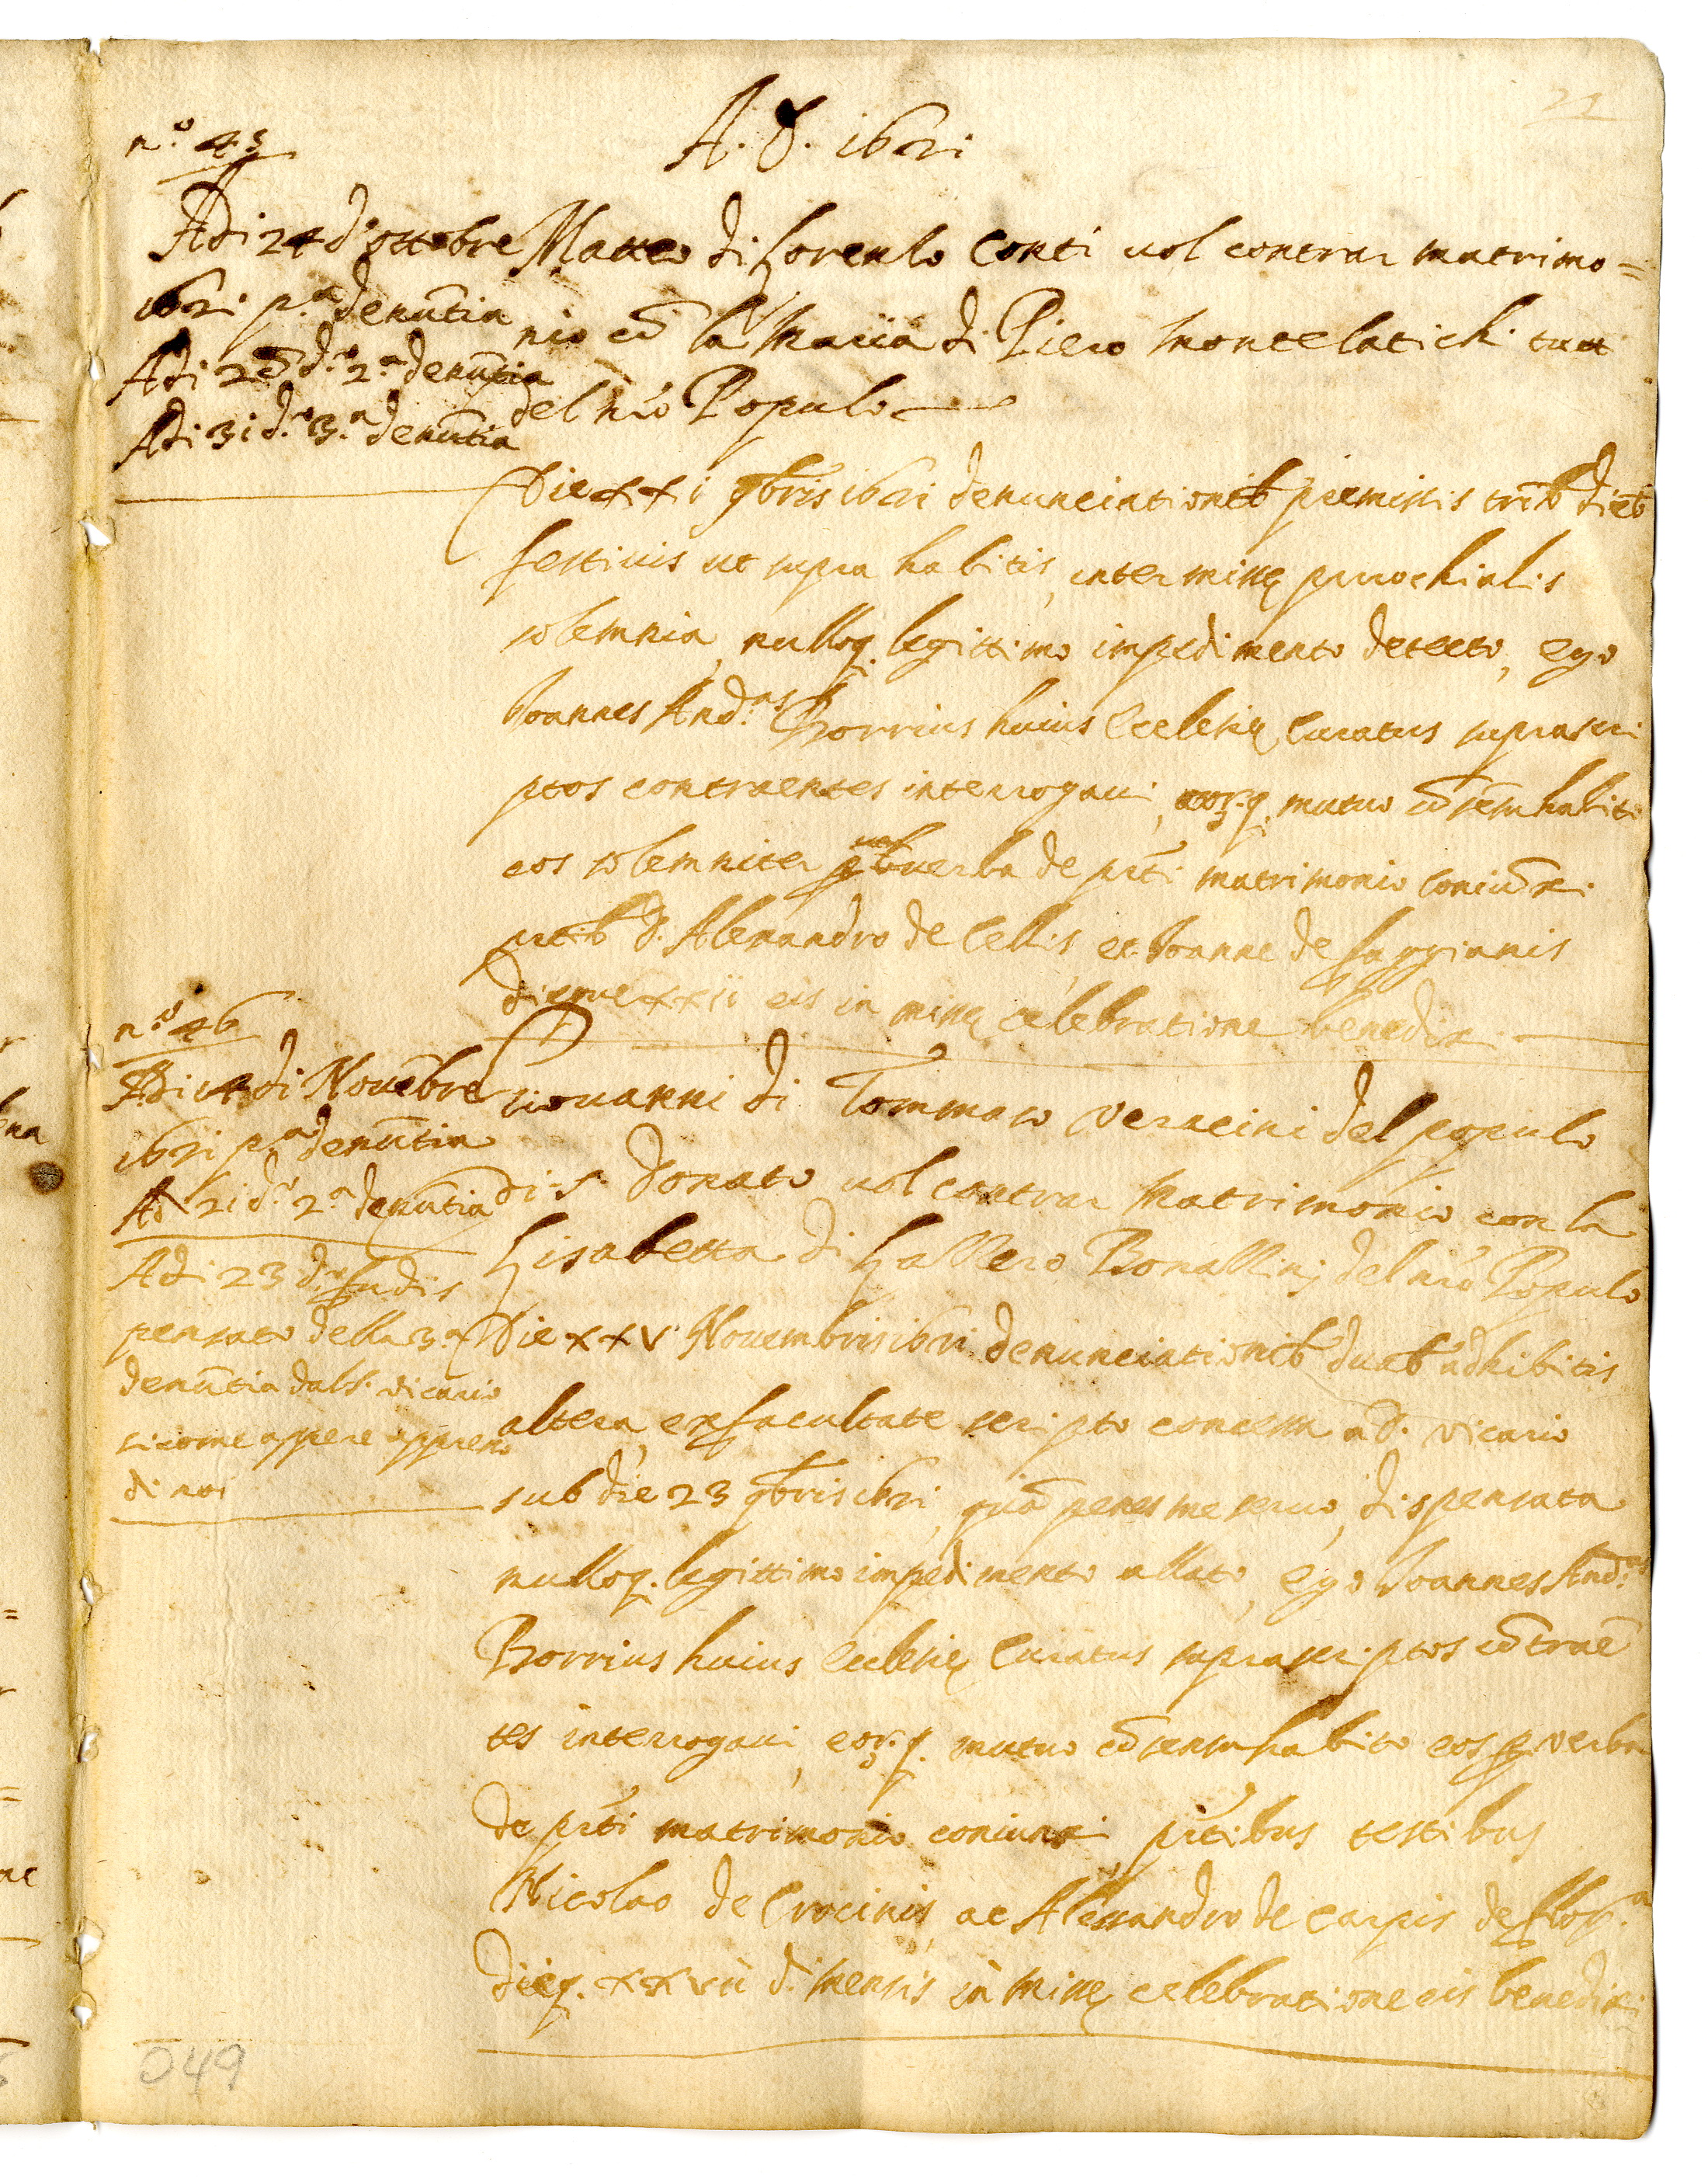 21
A. D. 1621
n.º 45
Adi 24 d'ottobre
1621 p.ª denũtia
Adi 28 d.º 2.ª denũtia
Adi 31 d.º 3.ª denũtia
Matteo di Lorenzo Conti uol contrar matrimo=
nio cõ la Maria di Piero Montelatichi tutti
del nr̃o Populo
Die xxi 9bris 1621 denunciationib' premissis trib' dieb'
festiuis ut supra habitis, inter missę parrochialis
solemnia, nulloq. legittimo impedimento detecto, ego
Ioannes And.as Borrius huius Ecclesię Curatus suprascri
ptos contraentes interrogaui, eorq. mutuo cõsensu habito
eos solemniter p uerba de pr̃ti matrimonio coniũxi.
pr̃tib' D. Alexandro de Cellis, et Ioanne de Faggianis
dieque xxii eis in missę celebratione benedixi.
n.º 46
Adi 14 di Nouẽbre
1621 p.ª denũtia
Adi 21 d.º 2.ª denũtia
Adi 23 d.º fu dis
pensato della 3.ª
denũtia dal S. Vicario
sicome appare appresso
di noi
Giouanni di Tommaso Veracini del populo
di S. Donato uol contrar Matrimonio con la
Lisabetta di Gallero Bonallini del nr̃o Populo
Die xxv Nouembris 1621 denunciationib' duab' adhibitis
altera, ex facultate scripto concessa a D. Vicario
sub die 23 9bris 1621, quã penes me seruo, dispensata
nulloq. legittimo impedimento allato, ego Ioannes And.as
Borrius huius Ecclesię Curatus suprascriptos cõtraẽ
tes interrogaui, eorq. mutuo cõsensu habito eos p uerba
de pr̃ti matrimonio coniunxi, pr̃tibus testibus
Nicolao de Crocinis, ac Alexandro de Carpis de Flor.ª
dieq. xxvii d. mensis in missę celebratione eis benedixi
049